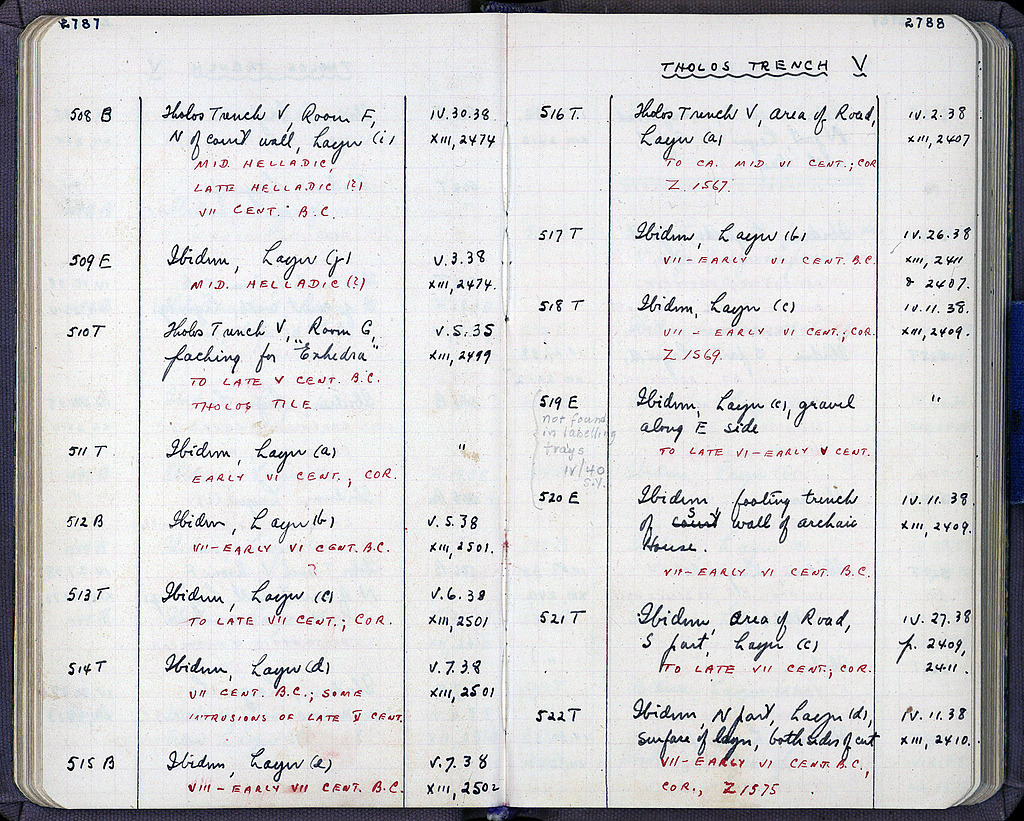 2787
508 B Tholos Trench V, Room F, IV.30.38
N of court wall, Layer (i) XIII, 2474
MID. HELLADIC,
LATE HELLADIC (?)
VII CENT. B.C.
509 E Ibidem, Layer (j) V.3.38
MID. HELLADIC (?) XIII, 2474.
510 T Tholos Trench V, Room G, V.5.35
packing for "Exhedra" XIII, 2499
TO LATE V CENT. B.C.
THOLOS TILE
511 T Ibidem, Layer (a) "
EARLY VI CENT., COR.
512 B Ibidem, Layer (b) V.5.38
VII-EARLY VI CENT. B.C. XIII, 2501.
?
513 T Ibidem, Layer (c) V.6.38
TO LATE VII CENT.; COR. XIII, 2501
514 T Ibidem, Layer (d) V.7.38
VII CENT. B.C.; SOME XIII, 2501
INTRUSIONS OF LATE V CENT.
515 B Ibidem, Layer (e) V.7.38
VIII-EARLY VII CENT. B.C. XIII, 2502
2788
THOLOS TRENCH V
516 T Tholos Trench V, area of Road, IV.2.38
Layer (a) XIII, 2407
TO CA. MID VI CENT.; COR
Z 1567.
517 T Ibidem, Layer (b) IV.26.38
VII-EARLY VI CENT. B.C. XIII, 2411
& 2407.
518 T Ibidem, Layer (c) IV.11.38.
VII - EARLY VI CENT.; COR. XIII, 2409.
Z 1569.
519 E Ibidem, Layer (c), gravel "
along E side
TO LATE VI-EARLY V CENT.
not found
in labelling
trays
IV/40
S.Y.
520 E Ibidem, footing trench IV.11.38
of court S wall of archaic XIII, 2409.
House.
VII-EARLY VI CENT. B.C.
521 T Ibidem, area of Road, IV.27.38
S part, Layer (c) p. 2409,
TO LATE VII CENT.; COR. 2411
522 T Ibidem, N part, Layer (d), IV.11.38
surface of layer, both sides of cut XIII, 2410.
VII-EARLY VI CENT. B.C.,
COR., Z 1575